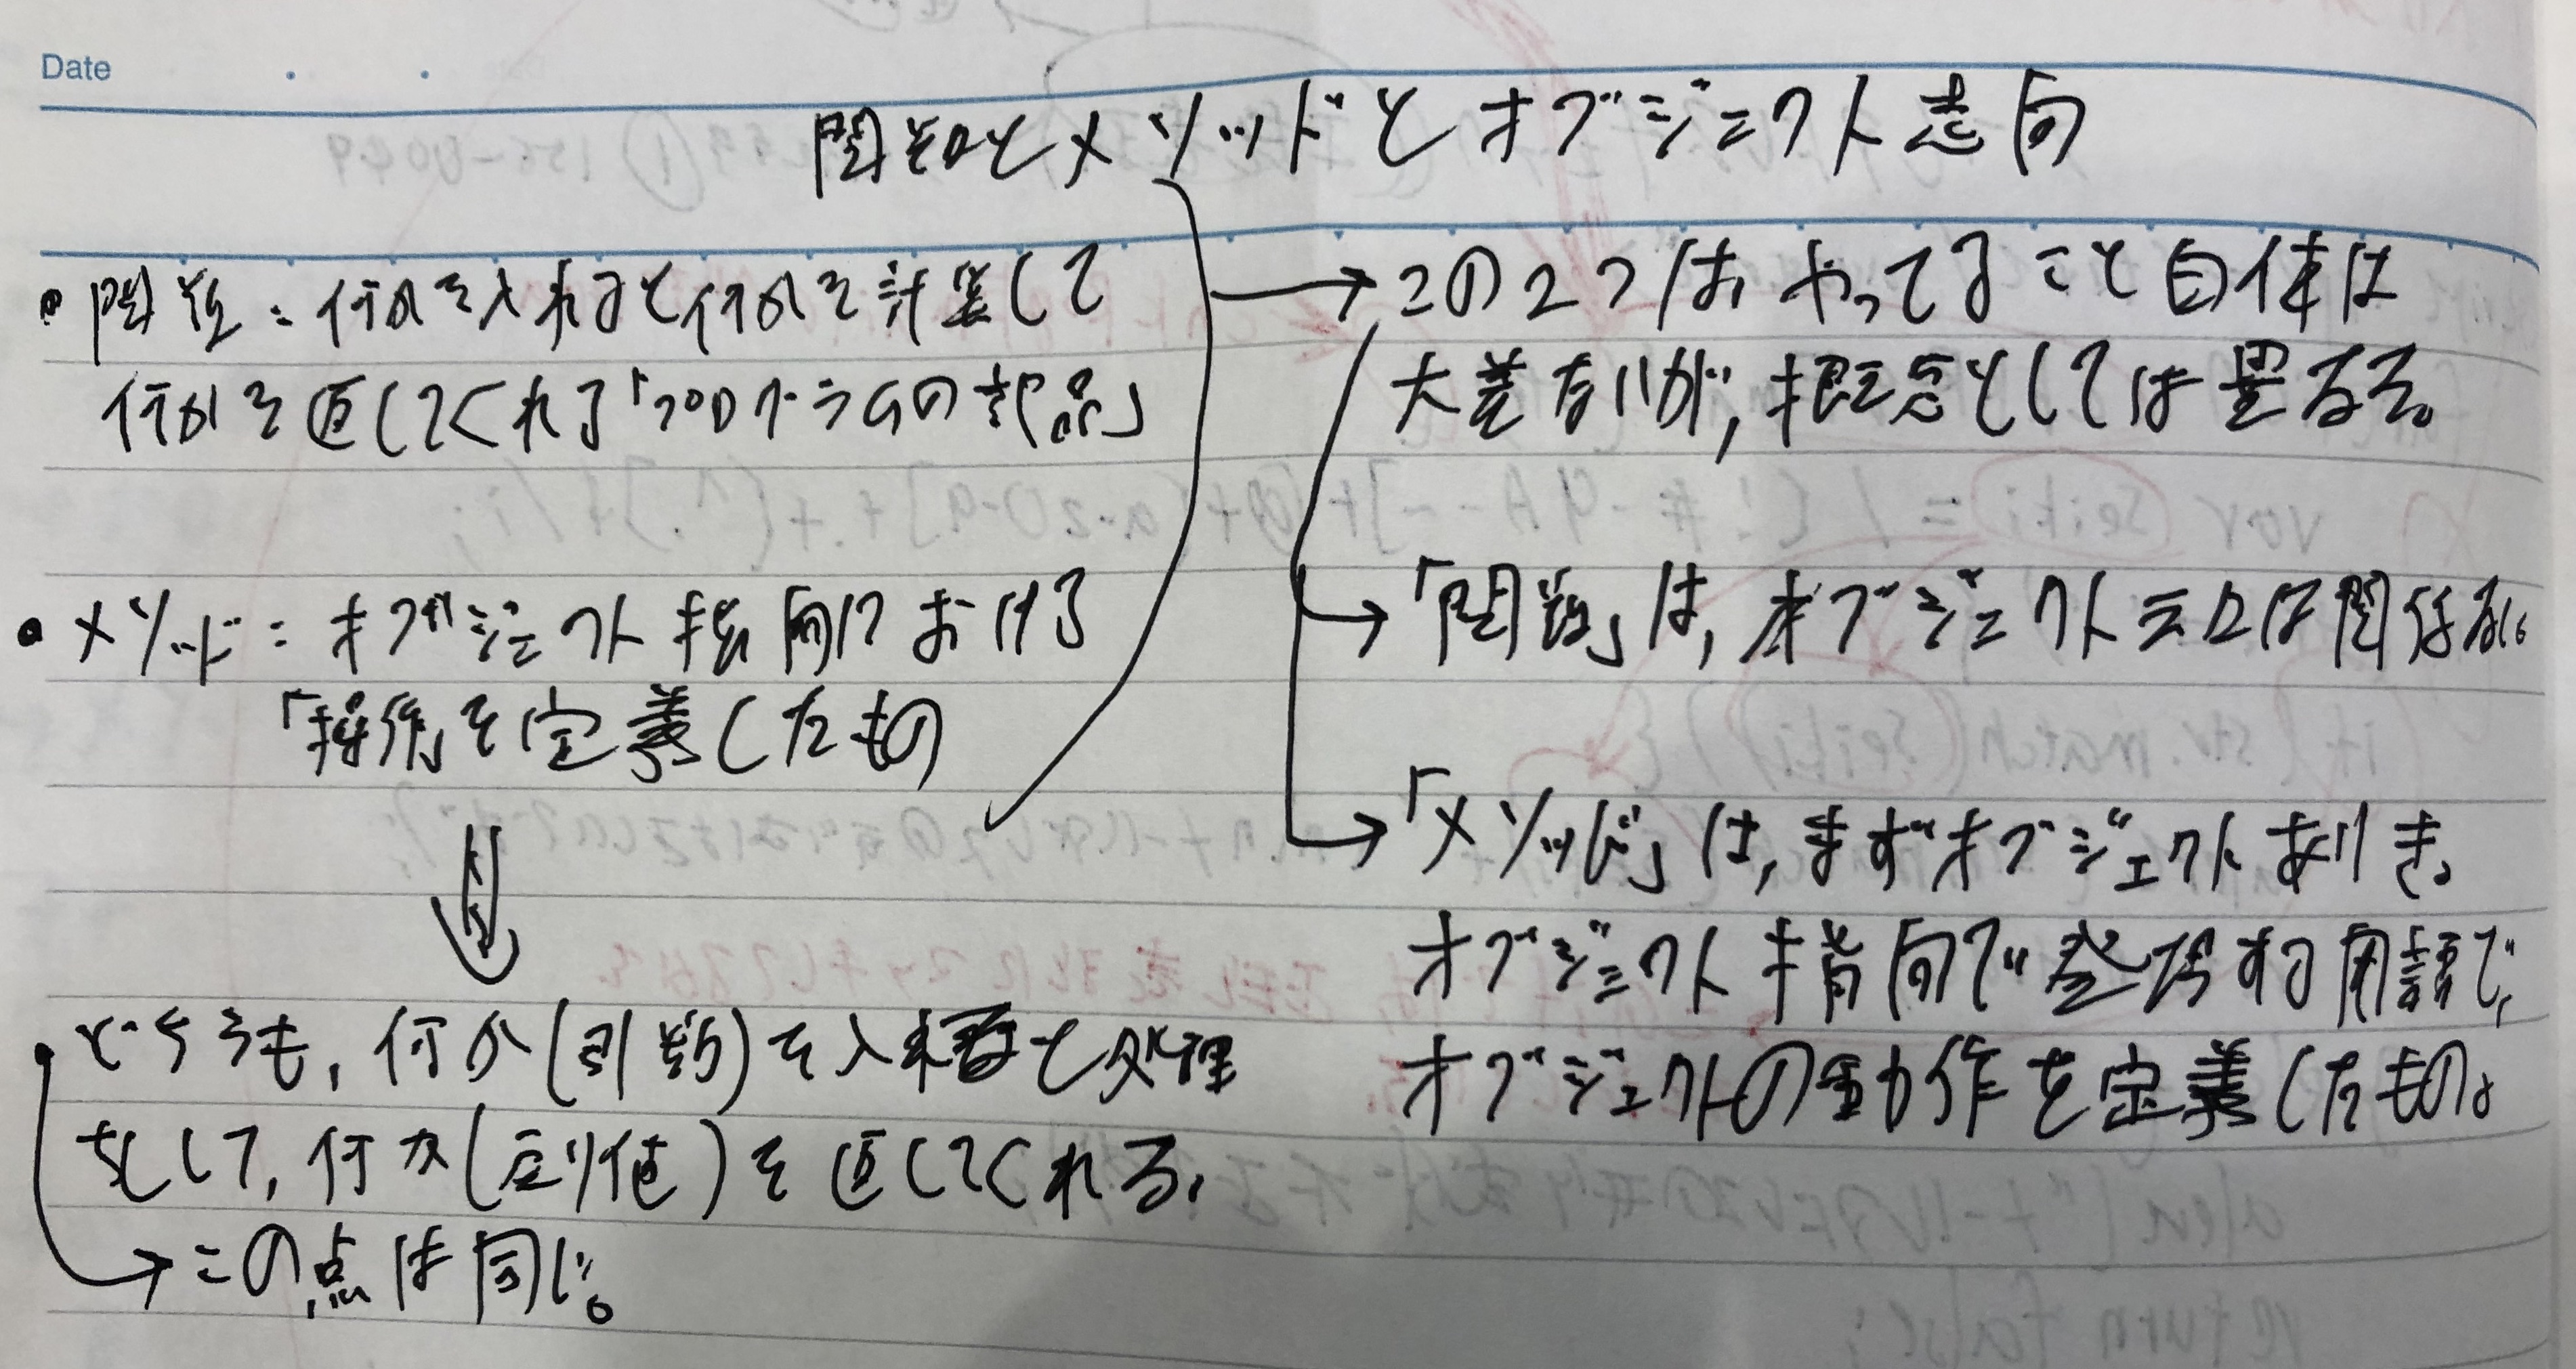 Date
関数とメソッドとオブジェクト志向
・関数：何かを入れると何かを計算して
何かを返してくれる「プログラムの部品」
・メソッド：オブジェクト指向における
「操作」を定義したもの
どちらも、何か(引数)を入れると処理
をして、何か(戻り値)を返してくれる。
→この点は同じ。
→この2つは、やってること自体は
大差ないが、概念としては異なる。
→「関数」は、オブジェクト云々は関係ない。
→「メソッド」は、まずオブジェクトありき。
オブジェクト指向で登場する用語で、
オブジェクトの動作を定義したもの。